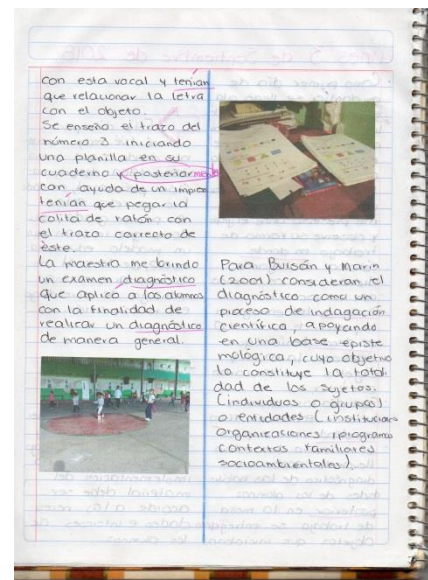 con esta vocal y tenían
que relacionar la letra
con el objeto.
Se enseño el trazo del
número 3 iniciando
una planilla en su
cuaderno y posteriormente
con ayuda de un
tenían que pegar la
colita de ratón con
el trazo correcto de
éste.
La maestra me brindo
un examen diagnóstico
que aplicó a los alumnos
con la finalidad de
realizar un diagnóstico
de manera general.
Para Buisán y Marín
(2001) consideran el
diagnóstico como un
proceso de indagación
científica, apoyando
en una base episte
mológica, cuyo objetivo
lo constituye la totali
dad de los sujetos.
(individuos o grupos)
o entidades (instituciones
organizaciones, programas
contextos familiares
socioambientales).